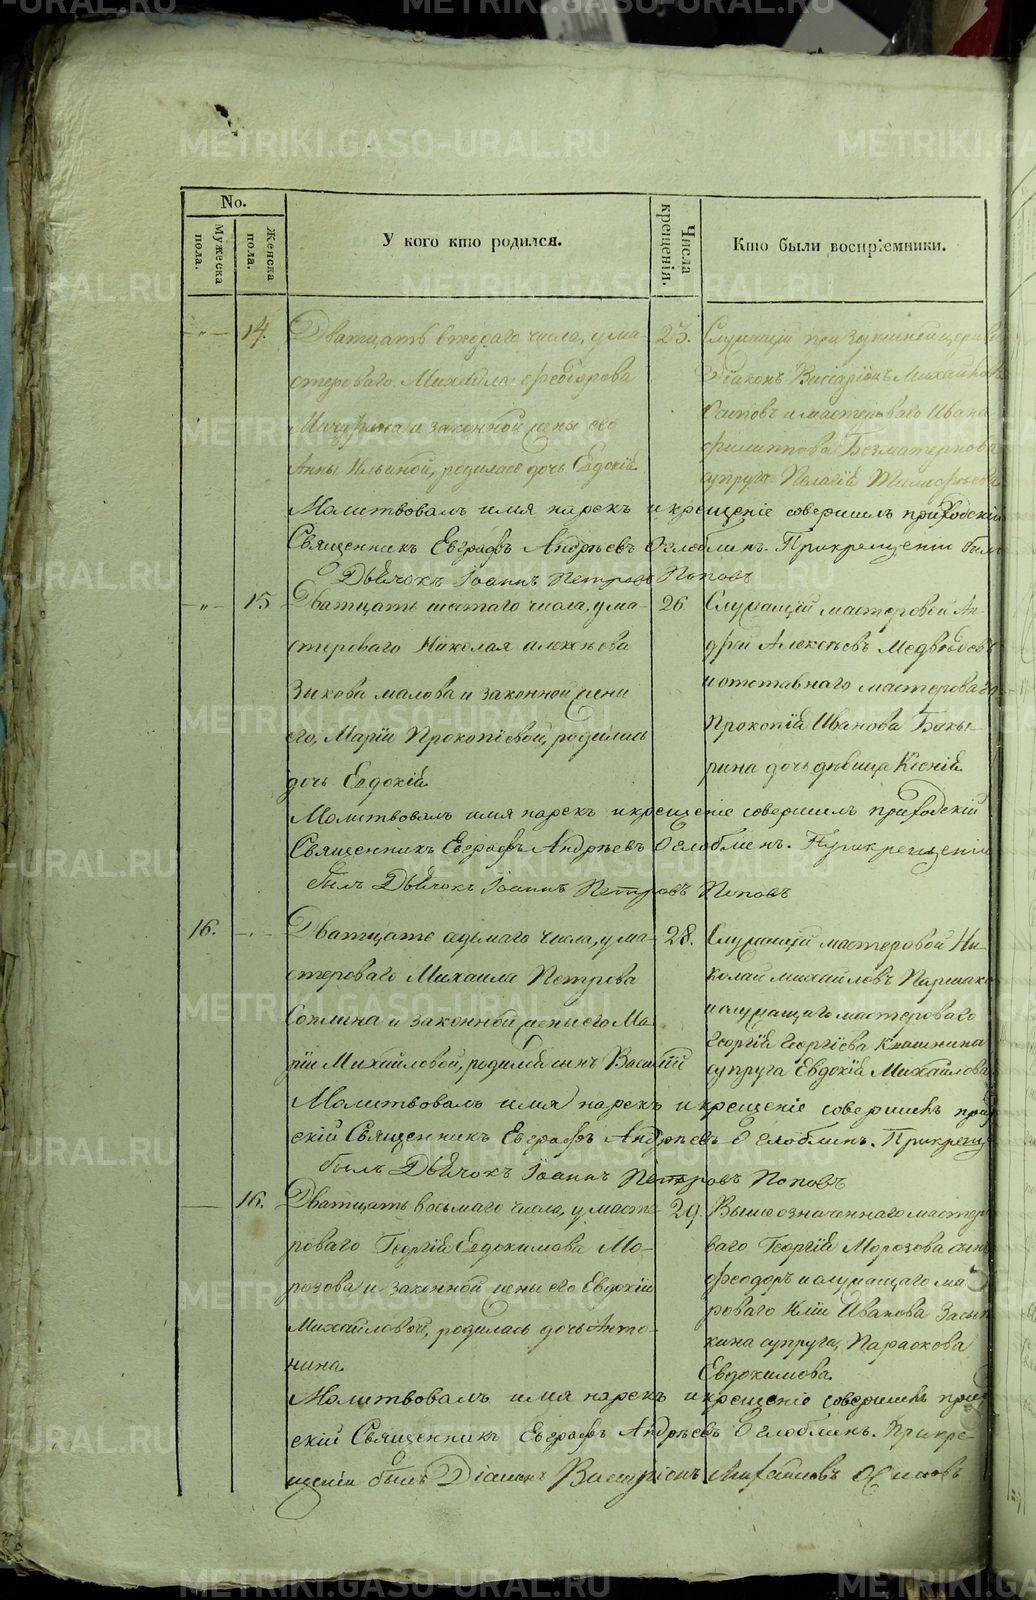 METRIKI.GASO-URAL.RU
No.
Мужеска пола.
Женска пола.
У кого кто родился.
Числа крещенія.
Кто были воспріемники.
14.
Дватцать втораго числа, у ма-
стероваго Михаила
и законной жены его
Анны Ильиной, родилась дочь Евдокія
23.
Служащій при здешней церкви
Діаконъ Висаріонъ Михайловъ
Осиповъ и мастероваго Ивана
Филиппова
супруга Пелагія
Молитвовалъ имя нарекъ и крещеніе совершилъ приходскій
Священникъ Евграфъ Андрѣевъ Оглоблинъ. При крещеніи былъ
Дьячокъ Іоаннъ Петровъ Поповъ
15
Дватцать шестаго числа, у ма-
стероваго Николая Алексѣева
Зыкова малова и законной жены
его, Маріи Прокопіевой, родилась
дочь Евдокія.
26
Служащій мастеровой Ан-
дрей Алексѣевъ Медвѣдевъ
и отставнаго мастероваго
Прокопія Иванова Бакы-
рина дочь дѣвица Ксенія.
Молитвовалъ имя нарекъ и крещеніе совершилъ приходскій
Священникъ Евграфъ Андрѣевъ Оглоблинъ. При крещеніи
былъ Дьячокъ Іоаннъ Петровъ Поповъ
16.
Дватцать седьмаго числа, у ма-
стероваго Михаила Петрова
и законной жены его Ма-
ріи Михайловой, родился сынъ Василій
28.
Служащій мастеровой Ни-
колай Михайловъ
и служащаго мастероваго
Георгія Георгіева
супруга Евдокія Михайлова
Молитвовалъ имя нарекъ и крещеніе совершилъ прих
скій Священникъ Евграфъ Андрѣевъ Оглоблинъ. При крещ
былъ Дьячокъ Іоаннъ Петровъ Поповъ
16.
Дватцать восьмаго числа, у масте-
роваго Георгія Евдокимова Мо-
розова и законной жены его Евдокіи
Михайловой, родилась дочь Анто-
нина.
29.
Выше означеннаго мастер
ваго Георгія Морозова сынъ
Феодоръ и служащаго ма
роваго Иліи Иванова
супруга, Параскова
Евдокимова.
Молитвовалъ имя нарекъ и крещеніе совершилъ прих
скій Священникъ Евграфъ Андрѣевъ Оглоблинъ. При кре-
щеніи былъ Діаконъ Висаріонъ Михайловъ Осиповъ